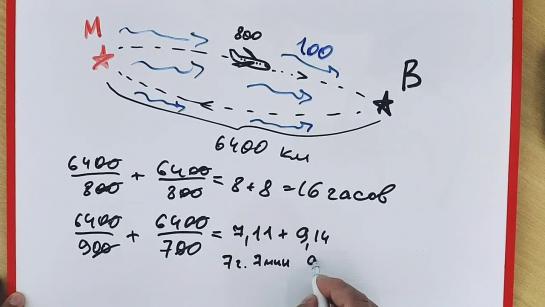 М 800 100 В
6400 км
6400/800 + 6400/800 = 8 + 8 = 16 часов
6400/900 + 6400/700 = 7,11 + 9,14
7ч. 7мин 9